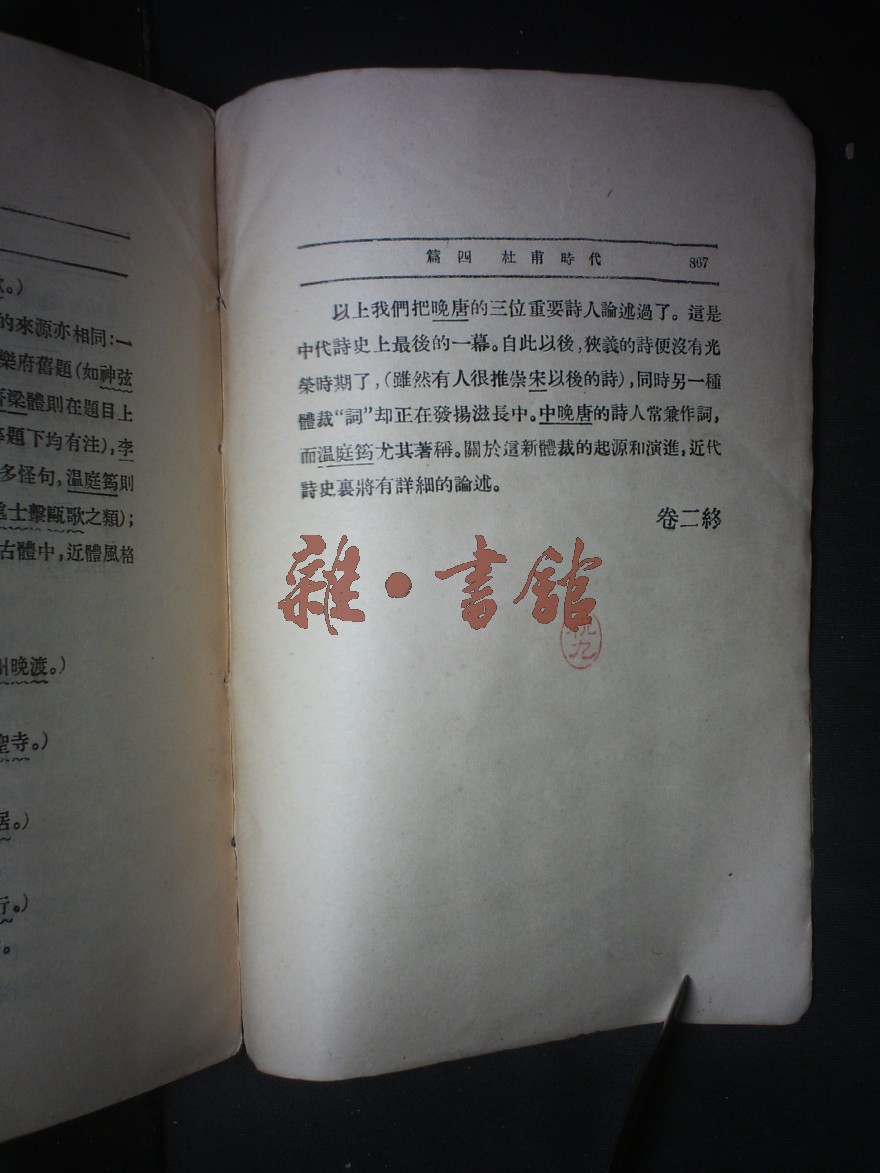 。)
的來源亦相同:一
樂府舊題(如神弦
梁體則在題目上
題下均有注),李
多怪句,温庭筠則
士擊甌歌之類);
古體中,近體風格
晚渡。)
聖寺。)
居。)
行。)
。
篇四 杜甫時代 867
以上我們把晚唐的三位重要詩人論述過了。這是
中代詩史上最後的一幕。自此以後,狹義的詩便沒有光
榮時期了,(雖然有人很推崇宋以後的詩),同時另一種
體裁“詞”却正在發揚滋長中。中晚唐的詩人常兼作詞,
而温庭筠尤其著稱。關於這新體裁的起源和演進,近代
詩史裏將有詳細的論述。
卷二終
雜·書館
九